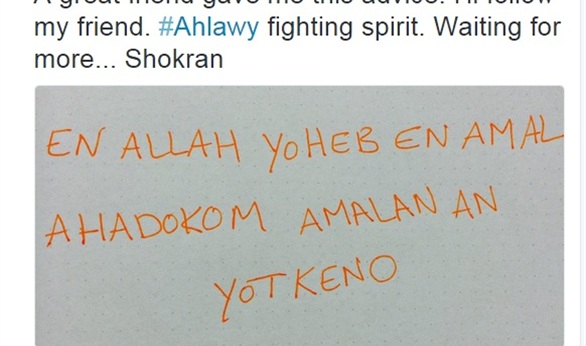 my friend. #Ahlawy fighting spirit. Waiting for
more... Shokran
EN ALLAH YOHEB EN AMAL
AHADOKOM AMALAN AN
YOTKENO